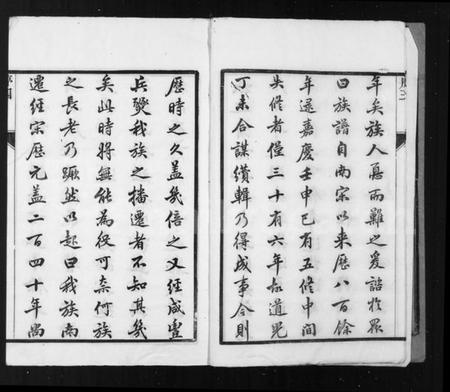 年矣族人惡而難之爰諮於眾
曰族譜自南宋以來歷八百餘
年溯嘉慶壬申已有五修中間
失修者僅三十有六年故道光
丁未合謀續輯乃得成事今則
歷時之久蓋幾倍之又經咸豐
兵燹我族之播遷者不知其幾
矣此時將無能為役可奈何族
之長老乃蹶然以起曰我族南
遷經宋歷元蓋二百四十年尚